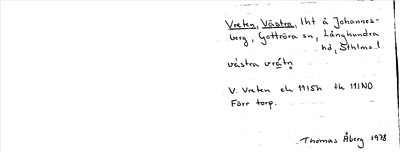 Vreten, Västra, lht å Johannes-
berg, Gottröra sn, Långhundra
hd, Sthlms l.
västra vrétn̥
V. Vreten ek 11I5h tk 11INO
Förr torp.
Thomas Åberg 1978